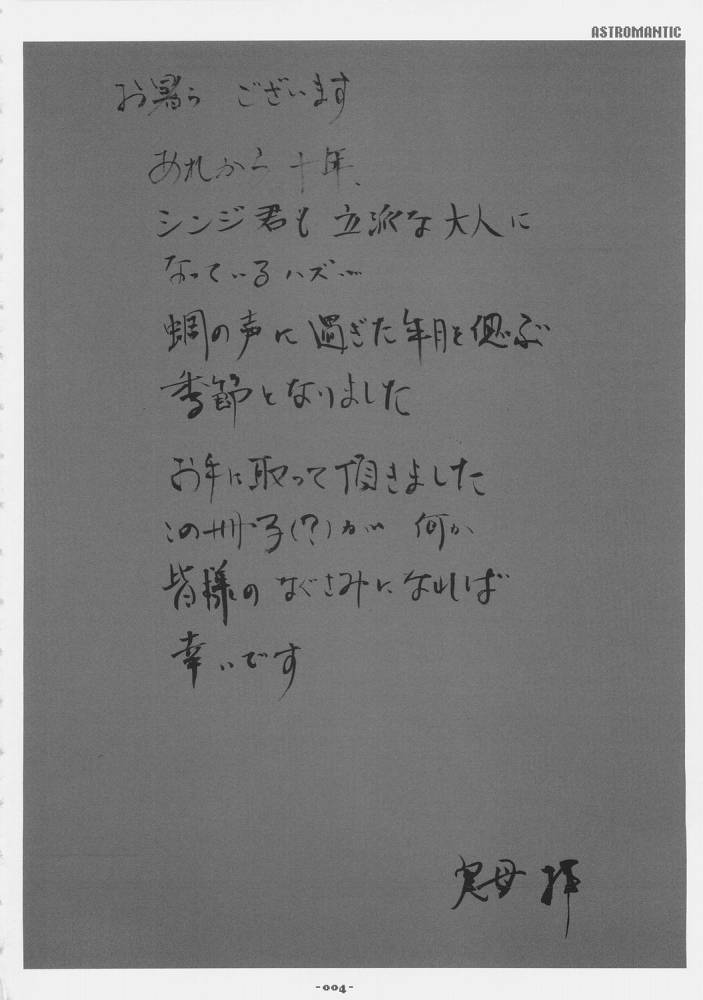 ASTROMANTIC
お暑う ございます
あれから 十年、
シンジ君も 立派な大人に
なっているハズ…
蜩の声に 過ぎた年月を偲ぶ
季節となりました
お手に取って頂きました
この冊子(?)が 何か
皆様の なぐさみになれば
幸いです
実母 拝
-004-